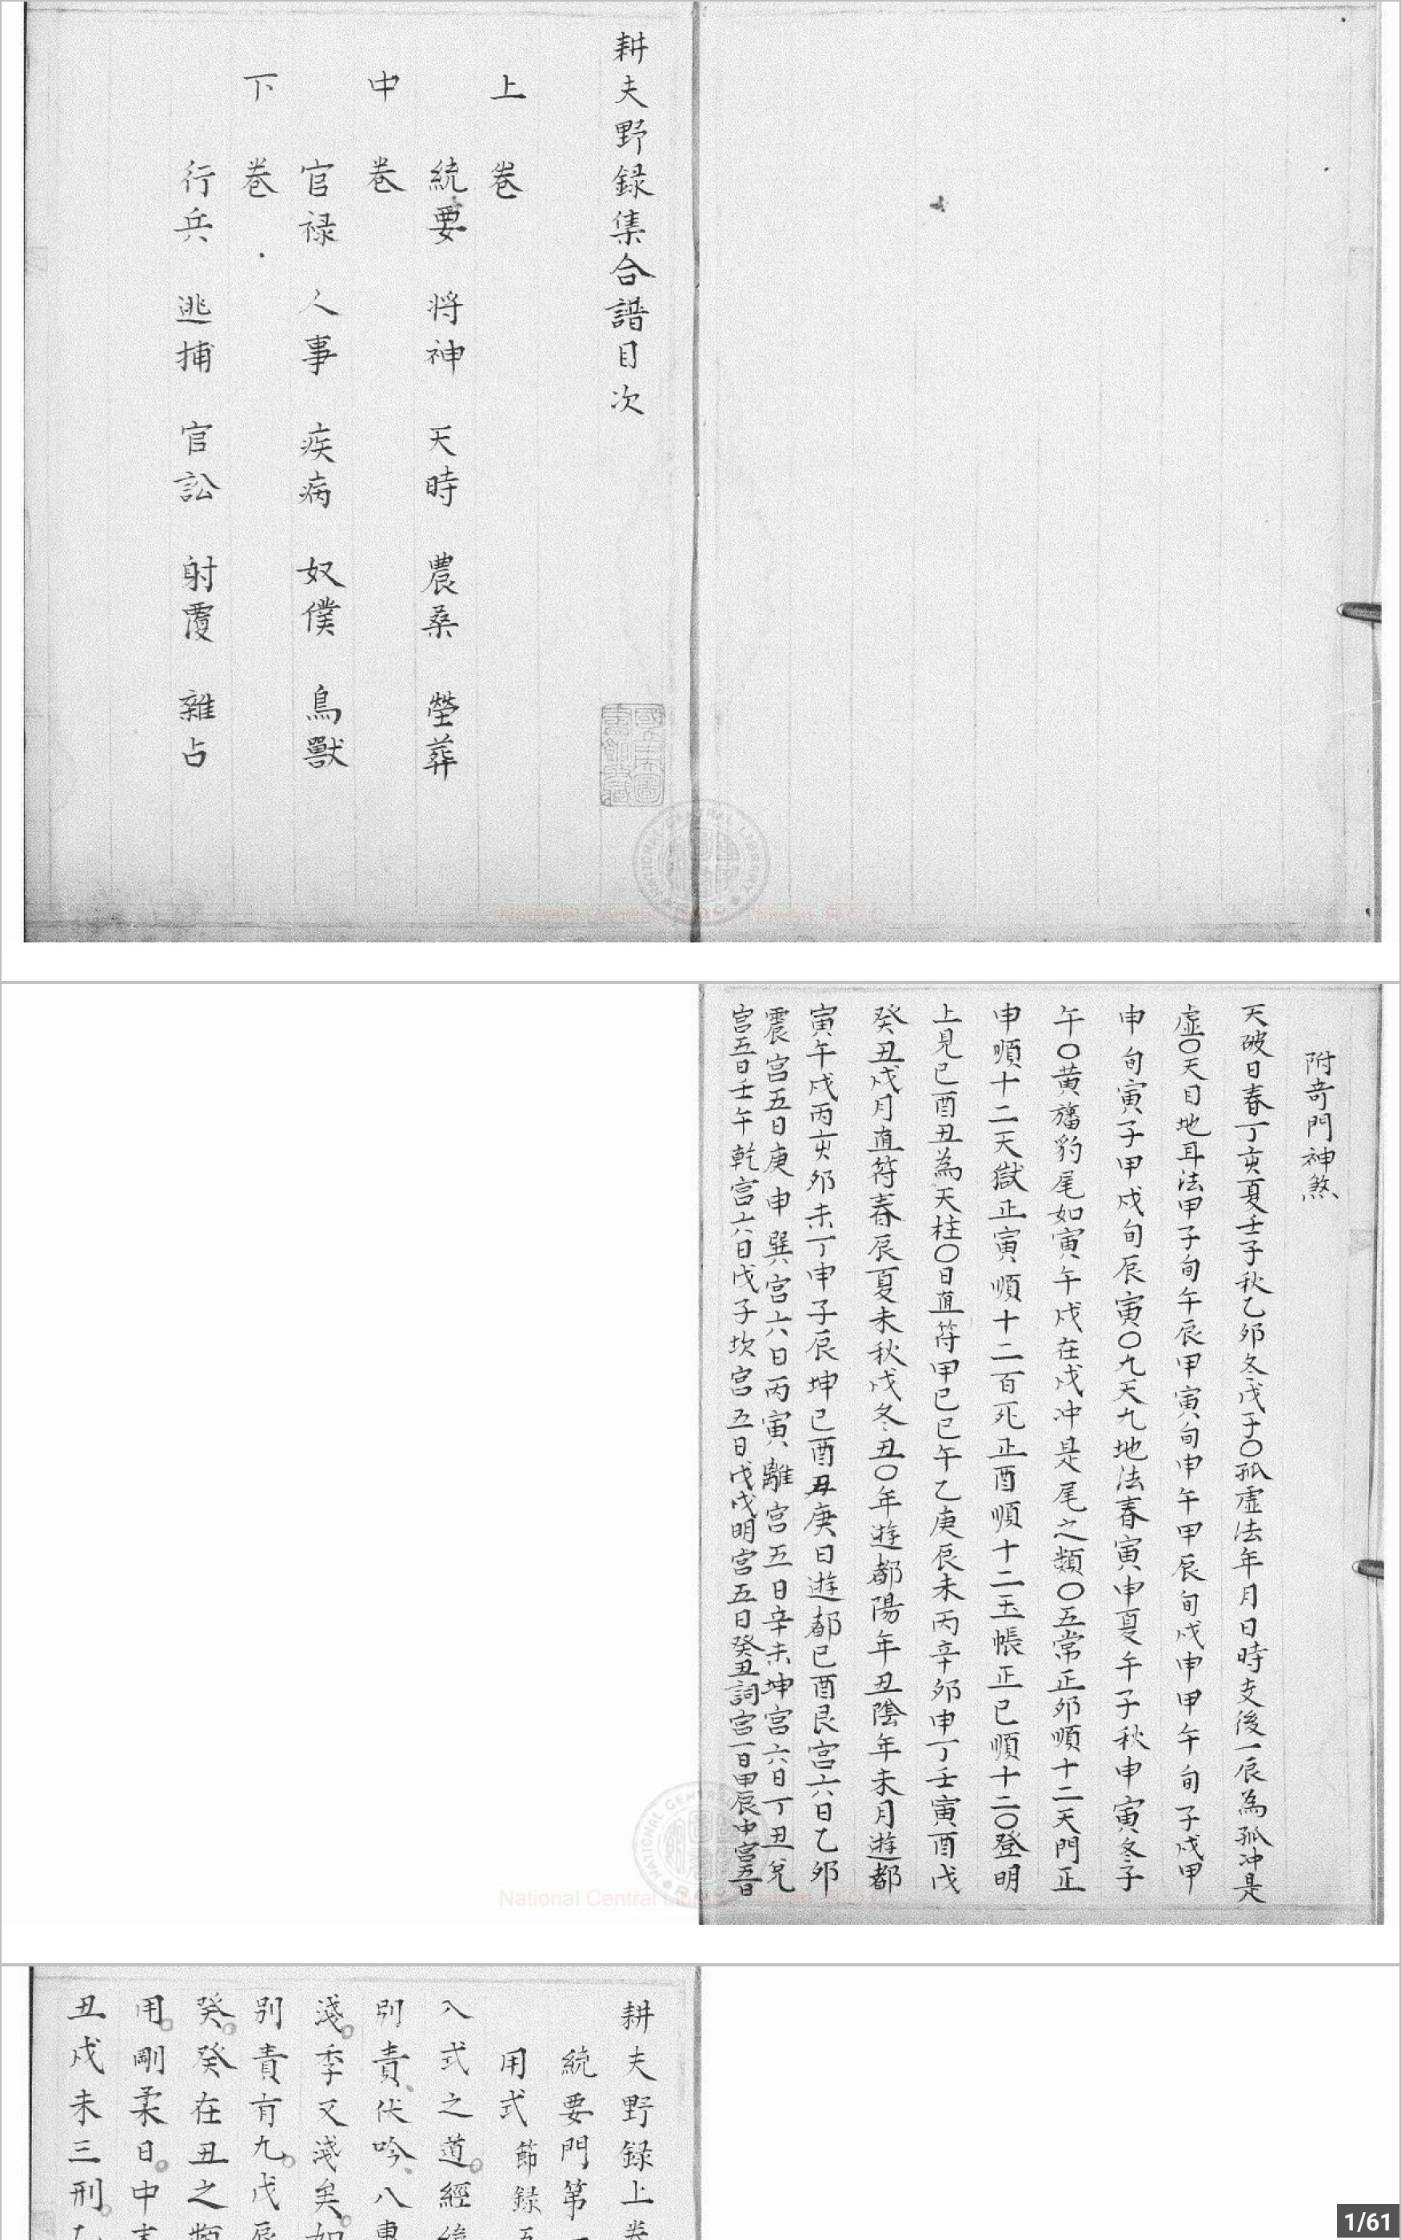 耕夫野録集合譜目次
上卷
統要 将神 天時 農桑 塋葬
中卷
官禄 人事 疾病 奴僕 鳥獸
下卷
行兵 逃捕 官訟 射覆 雜占
附奇門神煞
天破日春丁亥夏壬子秋乙卯冬戊子〇孤虛法年月日時支後一辰為孤冲是
虛〇天目地耳法甲子旬午辰甲寅旬申午甲辰旬戌申甲午旬子戌甲
申旬寅子甲戌旬辰寅〇九天九地法春寅申夏午子秋申寅冬子
午〇黄旛豹尾如寅午戌在戌冲是尾之類〇五常正卯順十二天門正
申順十二天獄正寅順十二百死正酉順十二玉帳正巳順十二〇登明
上見巳酉丑為天柱〇日直符甲巳巳午乙庚辰未丙辛卯申丁壬寅酉戊
癸丑戌月直符春辰夏未秋戌冬丑〇年遊都陽年丑陰年未月遊都
寅午戌丙亥卯未丁申子辰坤巳酉丑庚日遊都巳酉艮宮六日乙卯
震宮五日庚申巽宮六日丙寅離宮五日辛未坤宮六日丁丑兌
宮五日壬午乾宮六日戊子坎宮五日戊戌明宮五日癸丑詞宮一日甲辰中宮五日
耕夫野録上卷
統要門第一
用式 節録
入式之道經
別責伏吟八專
淺季又淺矣如
別責有九戊辰
癸癸在丑之類
用剛柔日中
丑戌未三刑
National Central Library, Taiwan, R.O.C
NATIONAL CENTRAL LIBRARY
National Central Library, Taiwan, R.O.C
NATIONAL CENTRAL LIBRARY
1/61